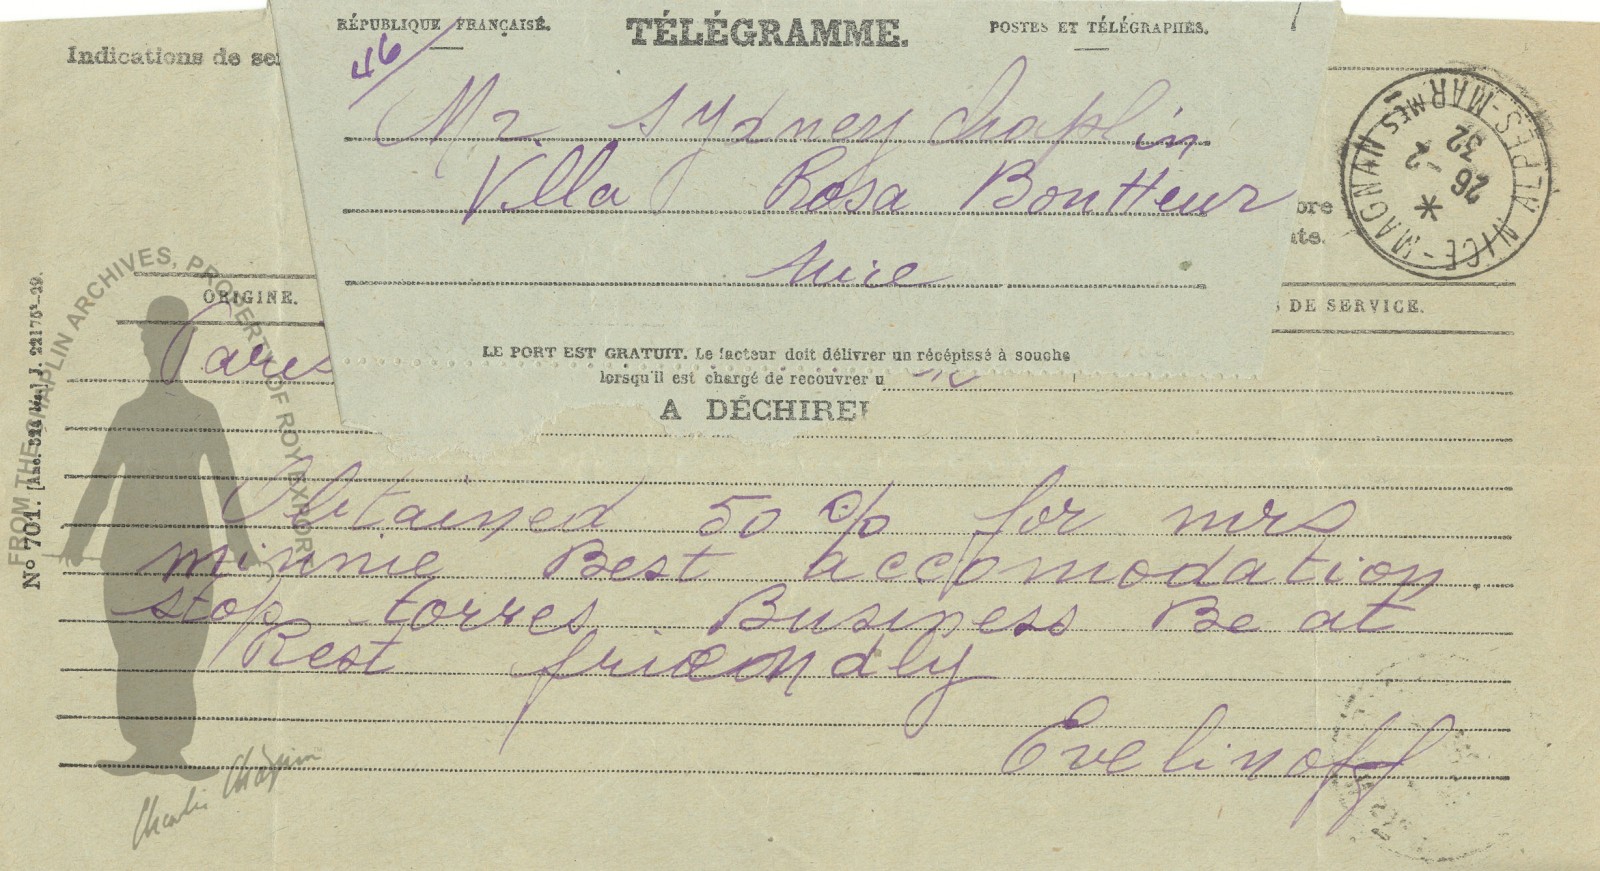 RÉPUBLIQUE FRANÇAISE.
TÉLÉGRAMME.
POSTES ET TÉLÉGRAPHES.
Indications de se
46/
Mr. Sydney chaplin
Villa Rosa Bontteur
Nice
ORIGINE.
S DE SERVICE.
Pares
LE PORT EST GRATUIT. Le facteur doit délivrer un récépissé à souche
lorsqu'il est chargé de recouvrer u
A DÉCHIRER
Obtained 50 % for mrs
minnie Best accomodation
stop torres Business Be at
Rest friendly
Evelinoff
NICE-MAGNAN ALPES-MARMES
26-2
32
N° 701. [Anc. 324 bis] J. 22175²-29
FROM THE CHAPLIN ARCHIVES, PROPERTY OF ROY EXPORT
Charlie Chaplin